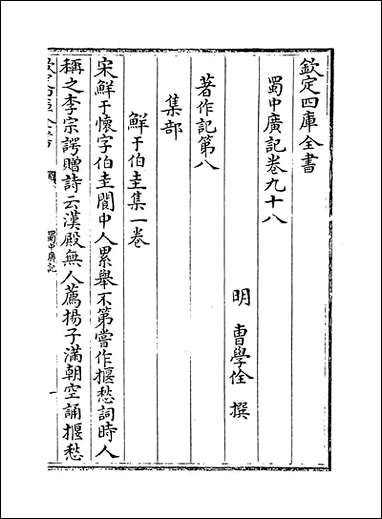 欽定四庫全書
蜀中廣記卷九十八
明 曹學佺 撰
著作記第八
集部
鮮于伯圭集一卷
宋鮮于懷字伯圭閬中人累舉不第嘗作揠愁詞時人
稱之李宗諤贈詩云漢殿無人薦揚子滿朝空誦揠愁
欽定四庫全書
蜀中廣記
一